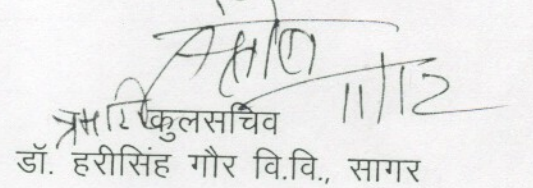 11/12
प्रभारी कुलसचिव
डॉ. हरीसिंह गौर वि.वि., सागर